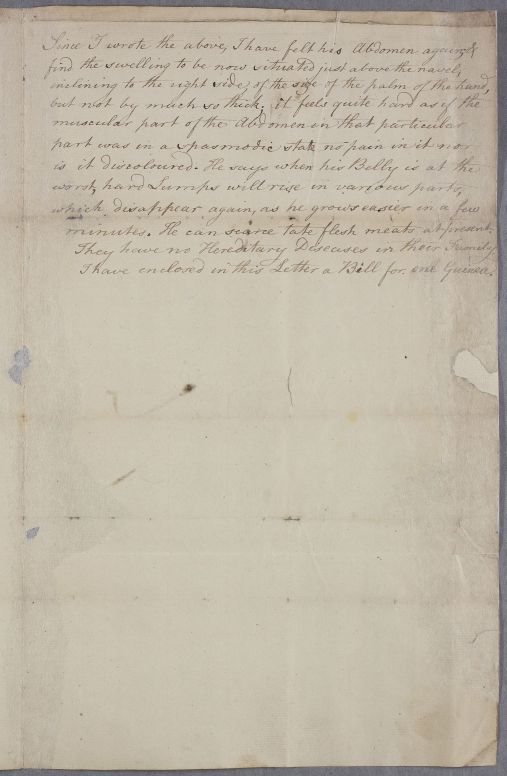 Since I wrote the above, I have felt his Abdomen again, &
find the swelling to be now situated just above the navel,
inclining to the right side, of the size of the palm of the hand,
but not by much so thick; it feels quite hard as if the
muscular part of the Abdomen in that particular
part was in a spasmodic state no pain in it nor
is it discoloured. He says when his Belly is at the
worst, hard Lumps will rise in various parts,
which disappear again, as he grows easier in a few
minutes. He can scarce tate flesh meats at present.
They have no Hereditary Diseases in their Family.
I have enclosed in this Letter a Bill for one Guinea.